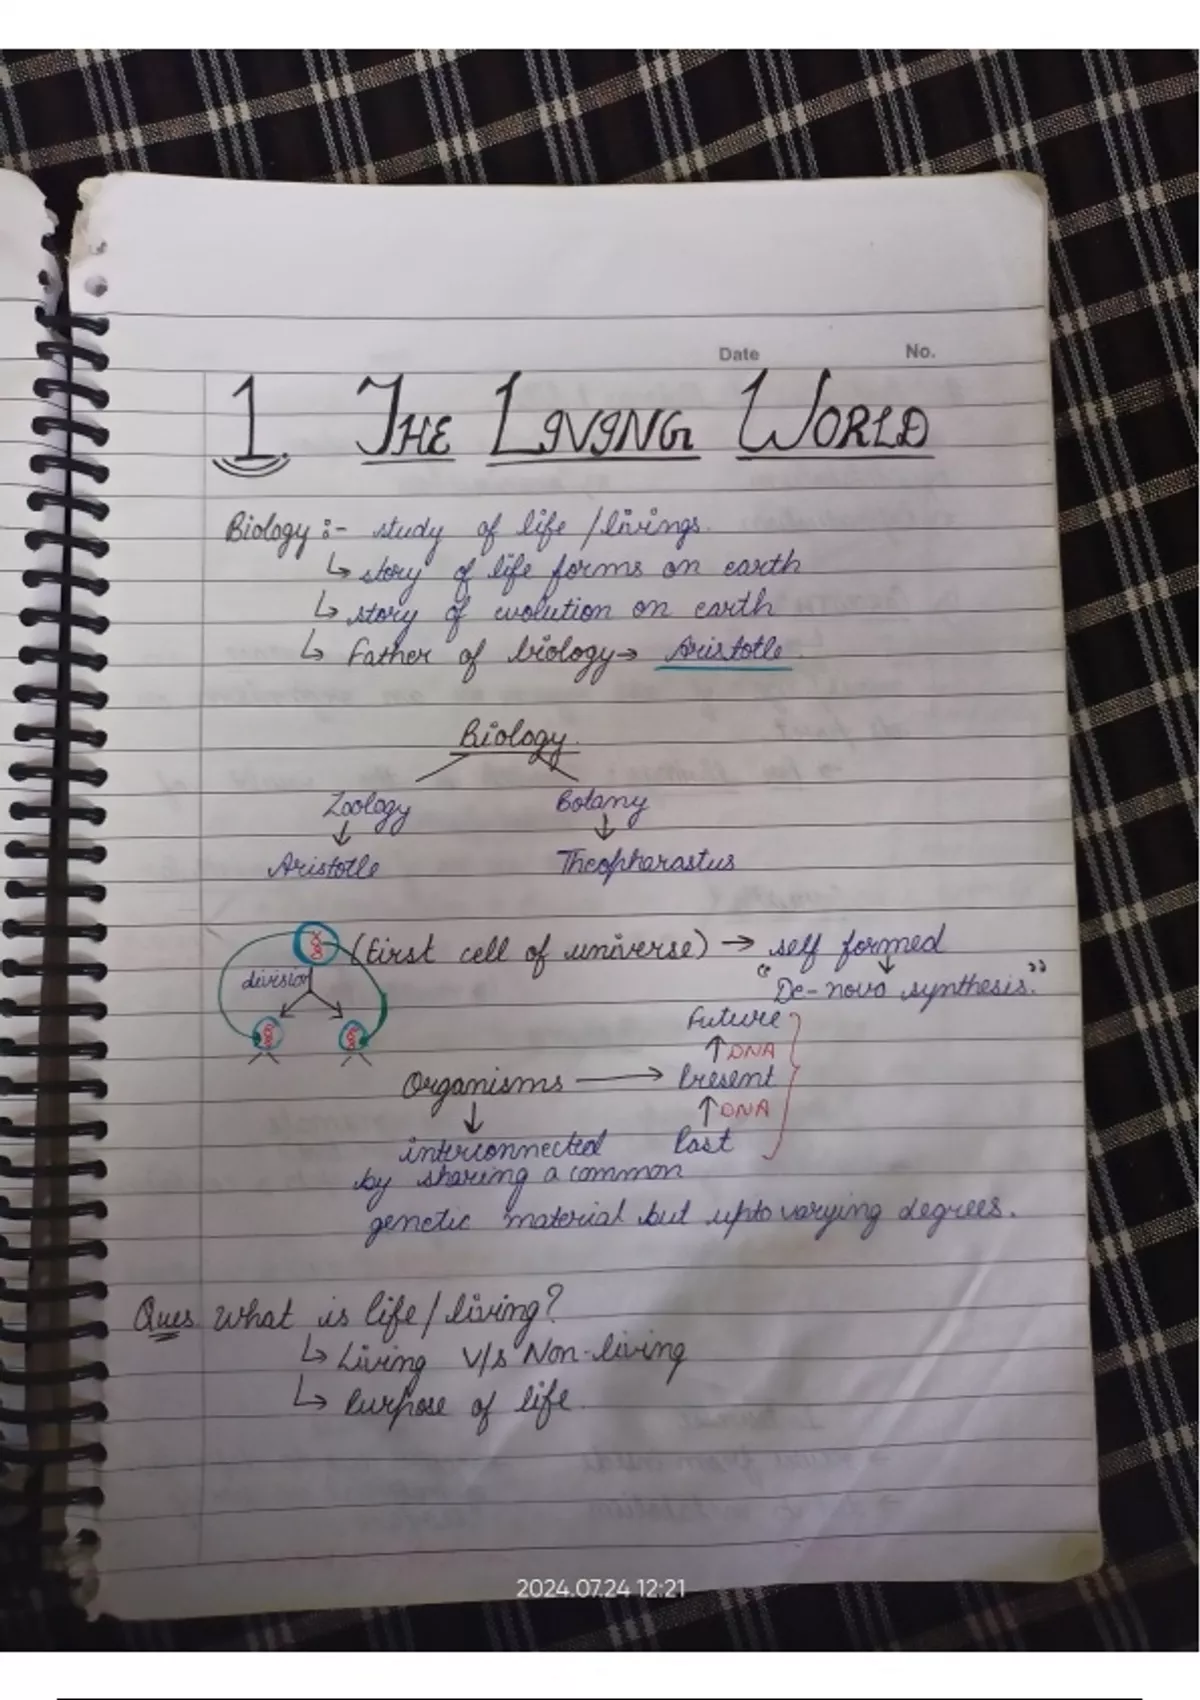 Date No.
1. THE LIVING WORLD
Biology :- study of life / livings.
↳ story of life forms on earth
↳ story of evolution on earth
↳ Father of biology → Aristotle.
Biology.
Zoology Botany
↓ ↓
Aristotle Theopharastus
(First cell of universe) → self formed
division
↓
"De-novo synthesis."
Future
↑ DNA
Organisms → Present
↓ ↑ DNA
interconnected Past
by sharing a common
genetic material but upto varying degrees.
Ques What is life / living?
↳ Living V/s Non-living
↳ Purpose of life.
2024.07.24 12:21